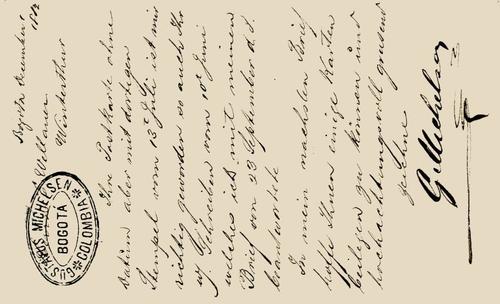 Bogotá December 1882
A. Wellauer
Winterthur
GUSTAVOS MICHELSEN
BOGOTÁ
COLOMBIA
Ihre Postkarte ohne
Datum aber mit dortigem
Stempel vom 13 Juli ist mir
richtig geworden so auch Ihr
Schreiben vom 10 Juni
welches ich mit meinem
Brief von 23 September d. J.
beantwortete
In mein nächsten Brief
hoffe Ihnen einige Karten
beilegen zu können und
hochachtungsvoll grüssend
zeichne
G. Michelsen